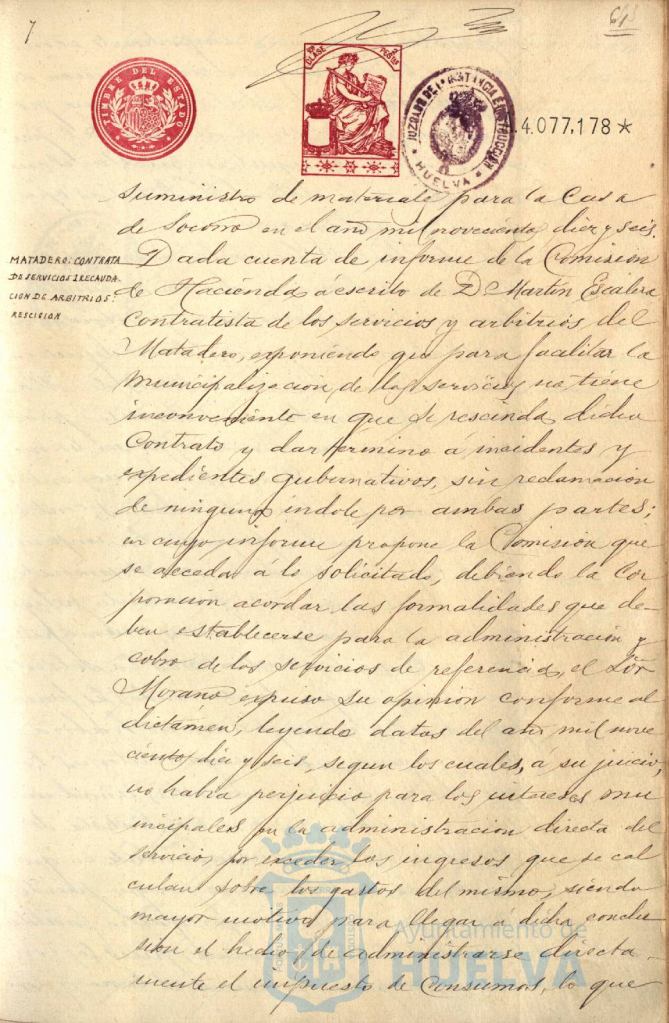 7
615
TIMBRE DEL ESTADO
CLASE
PESETAS
JUZGADO DE 1ª INSTANCIA E INSTRUCCION
HUELVA
4.077,178 *
suministro de materiale para la Casa
de Socorro en el año mil novecientos diez y seis.
MATADERO: CONTRATA
DE SERVICIOS I RECAUDA-
CION DE ARBITRIOS:
RESCICION
Dada cuenta de informe de la Comision
de Hacienda á escrito de D Martin Escalera
Contratista de los servicios y arbitrios del
Matadero, exponiendo que para facilitar la
municipalización de los servicios no tiene
inconveniente en que se rescinda dicho
Contrato y dar termino á incidentes y
expedientes gubernativos, sin reclamacion
de ninguna indole por ambas partes;
en cuyo informe propone la Comision que
se acceda á lo solicitado, debiendo la Cor
poracion acordar las formalidades que de-
ben establecerse para la administración y
cobro de los servicios de referencia, el Sor
Morano expuso su opinion conforme al
dictámen, leyendo datos del año mil nove
cientos diez y seis, segun los cuales, á su juicio,
no habia perjuicio para los intereses mu
nicipales en la administracion directa del
servicio, por exceder los ingresos que se cal
culan sobre los gastos del mismo, siendo
mayor motivo para llegar á dicha conclu
sion el hecho de administrarse directa-
mente el impuesto de Consumos, lo que
Ayuntamiento de
HUELVA